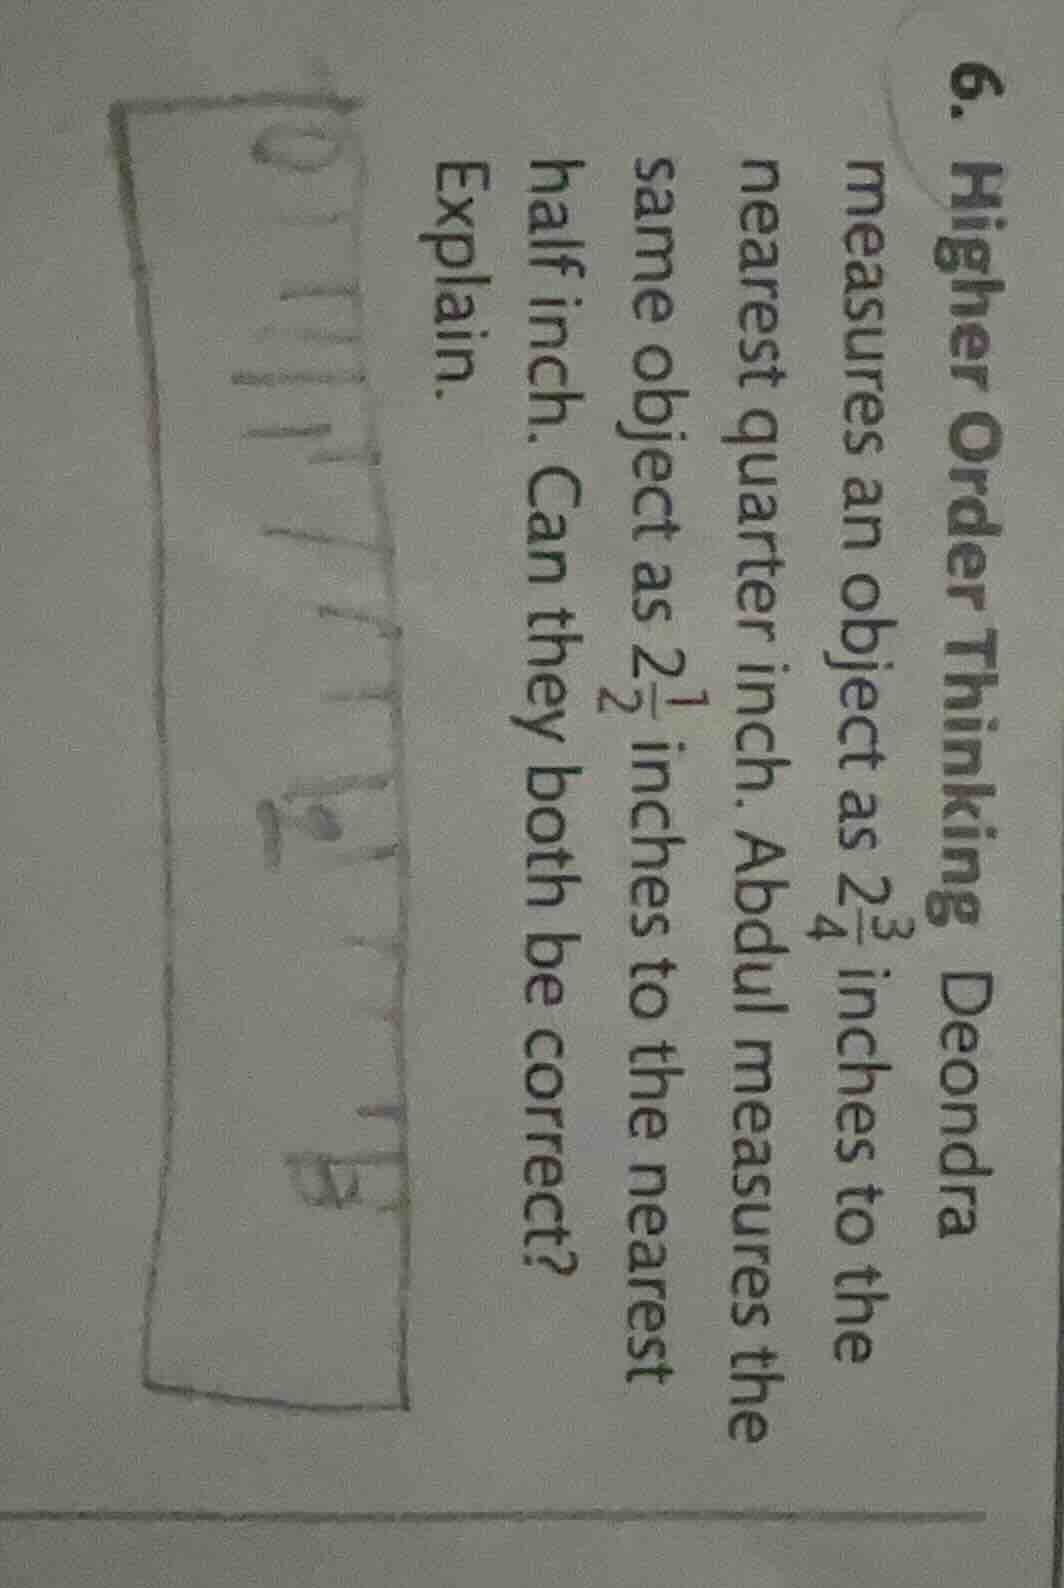 6. Higher Order Thinking Deondra
measures an object as 2 3/4 inches to the
nearest quarter inch. Abdul measures the
same object as 2 1/2 inches to the nearest
half inch. Can they both be correct?
Explain.
0 2 3